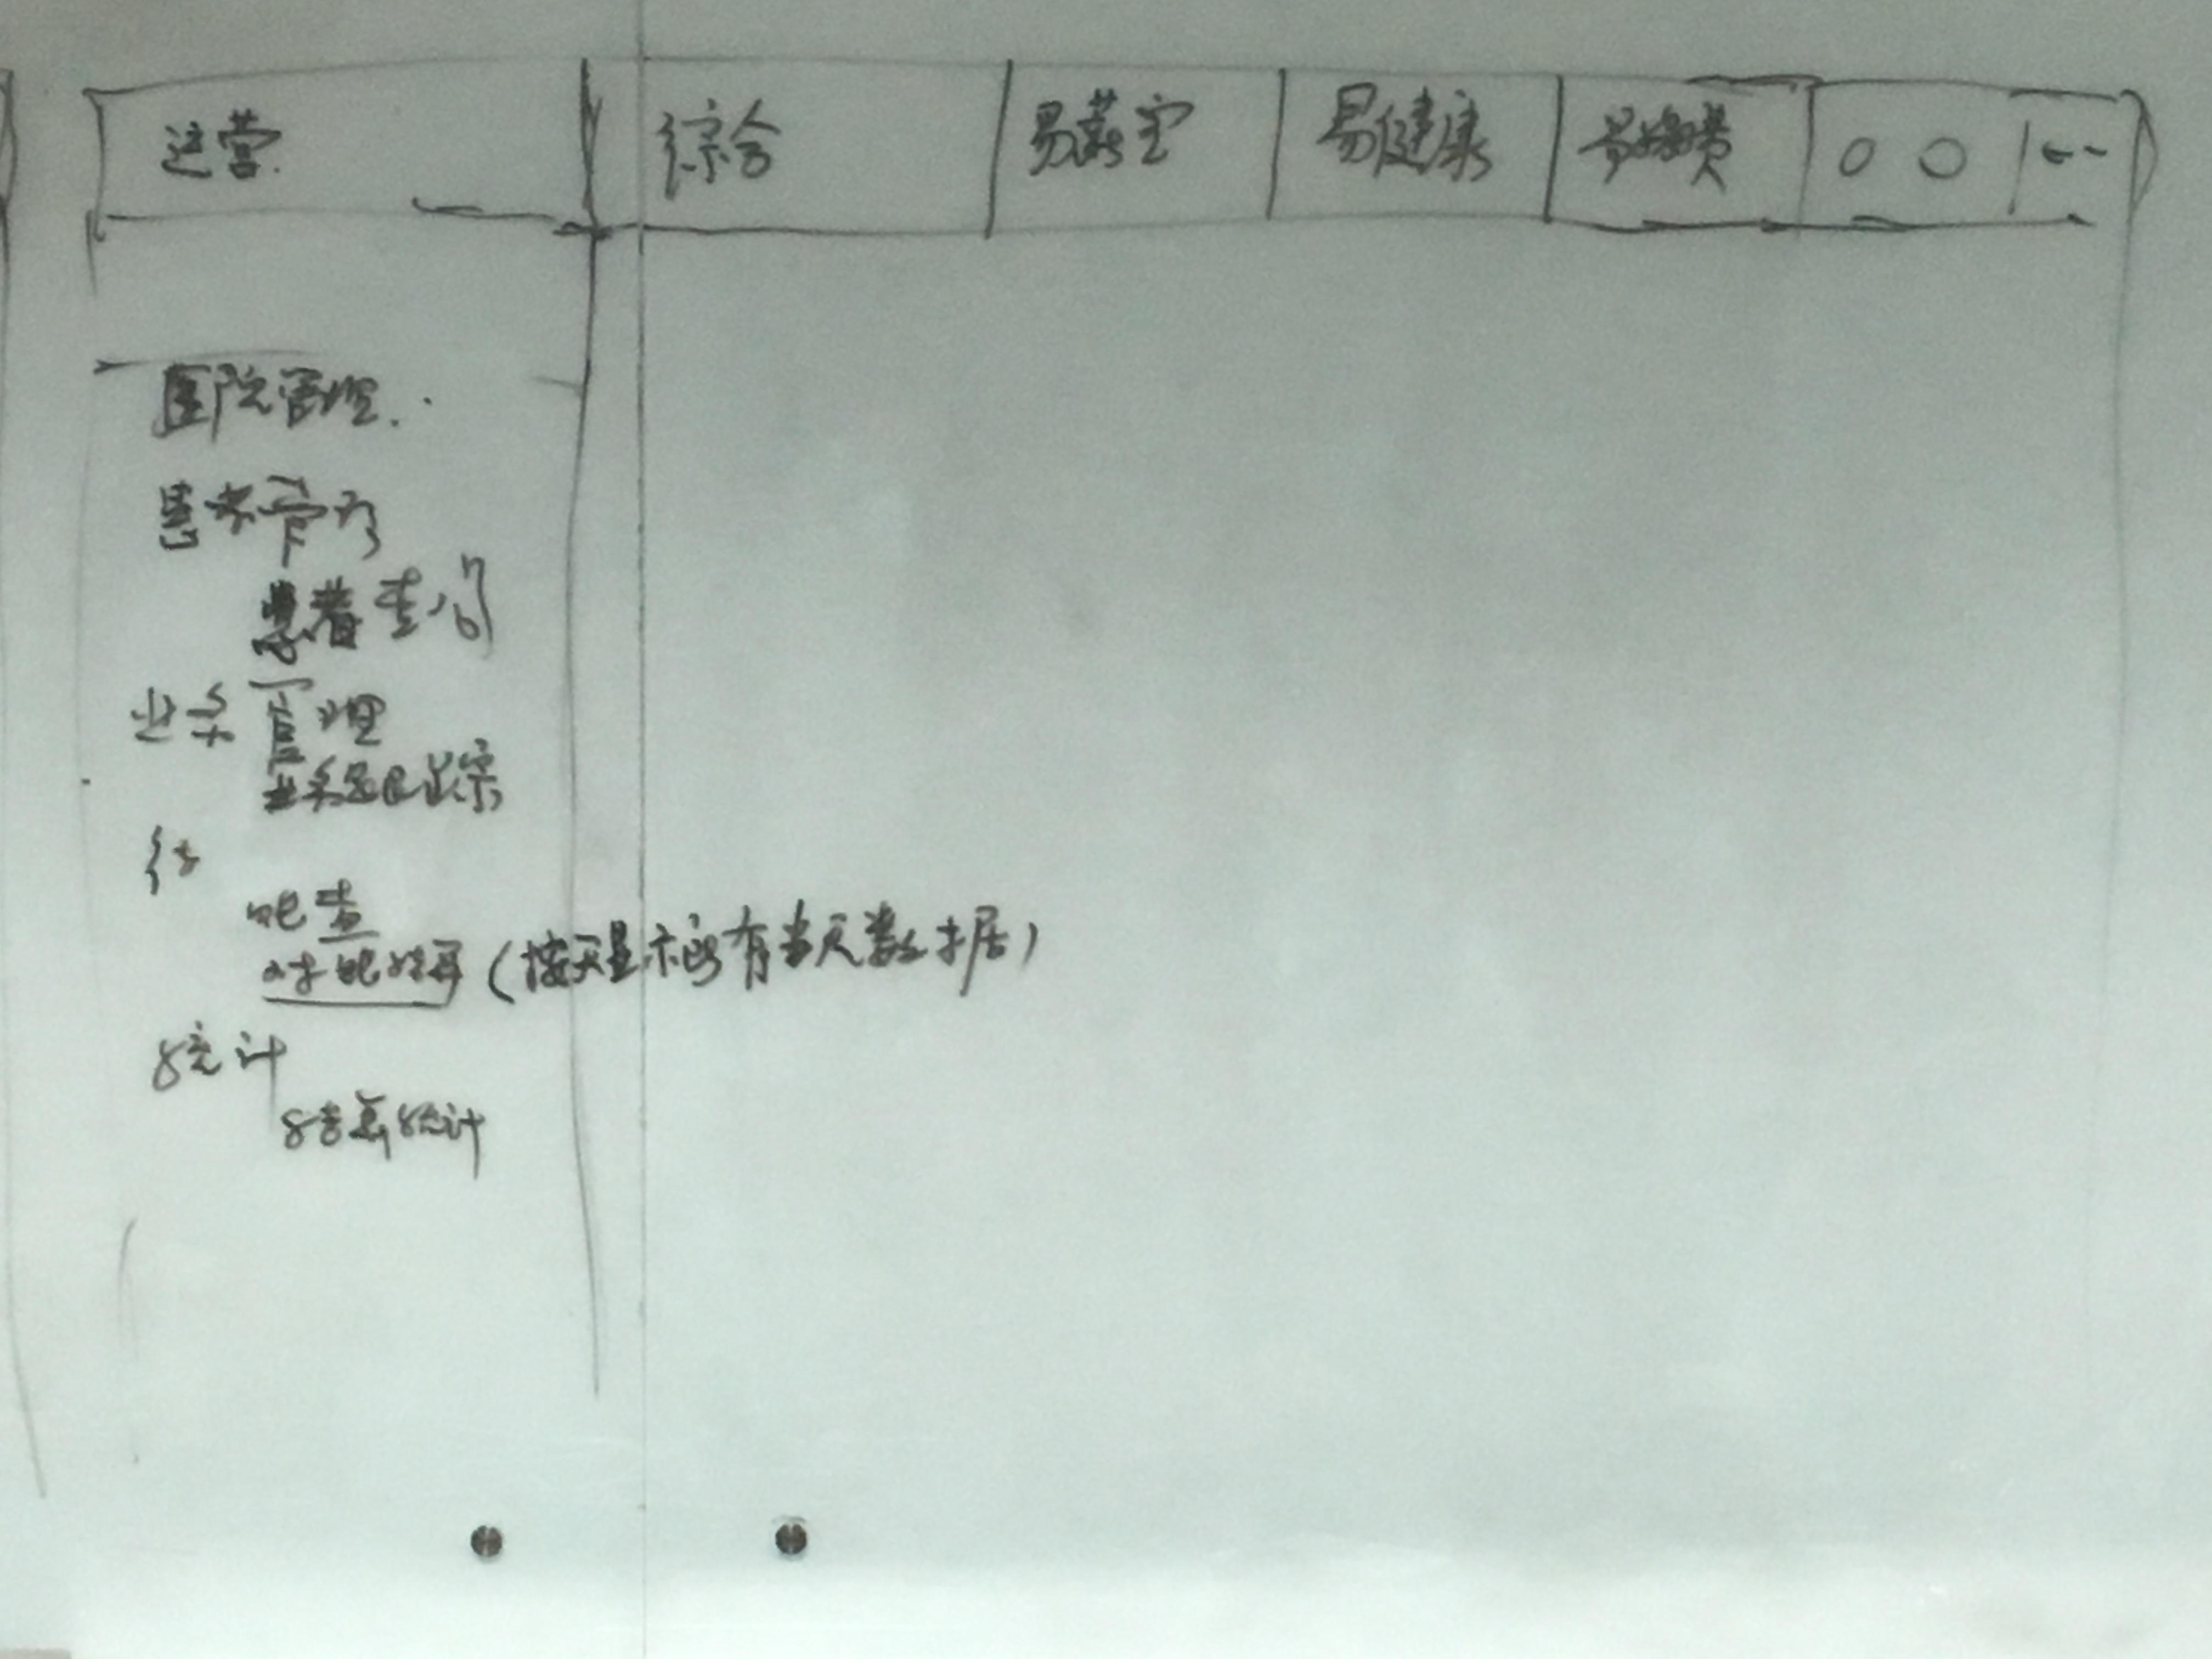 运营 综合 易薪宝 易健康 易缴费
医院管理
患者管理
患者查询
业务管理
业务跟踪
对账结果(按天显示所有当天数据)
统计
结算统计